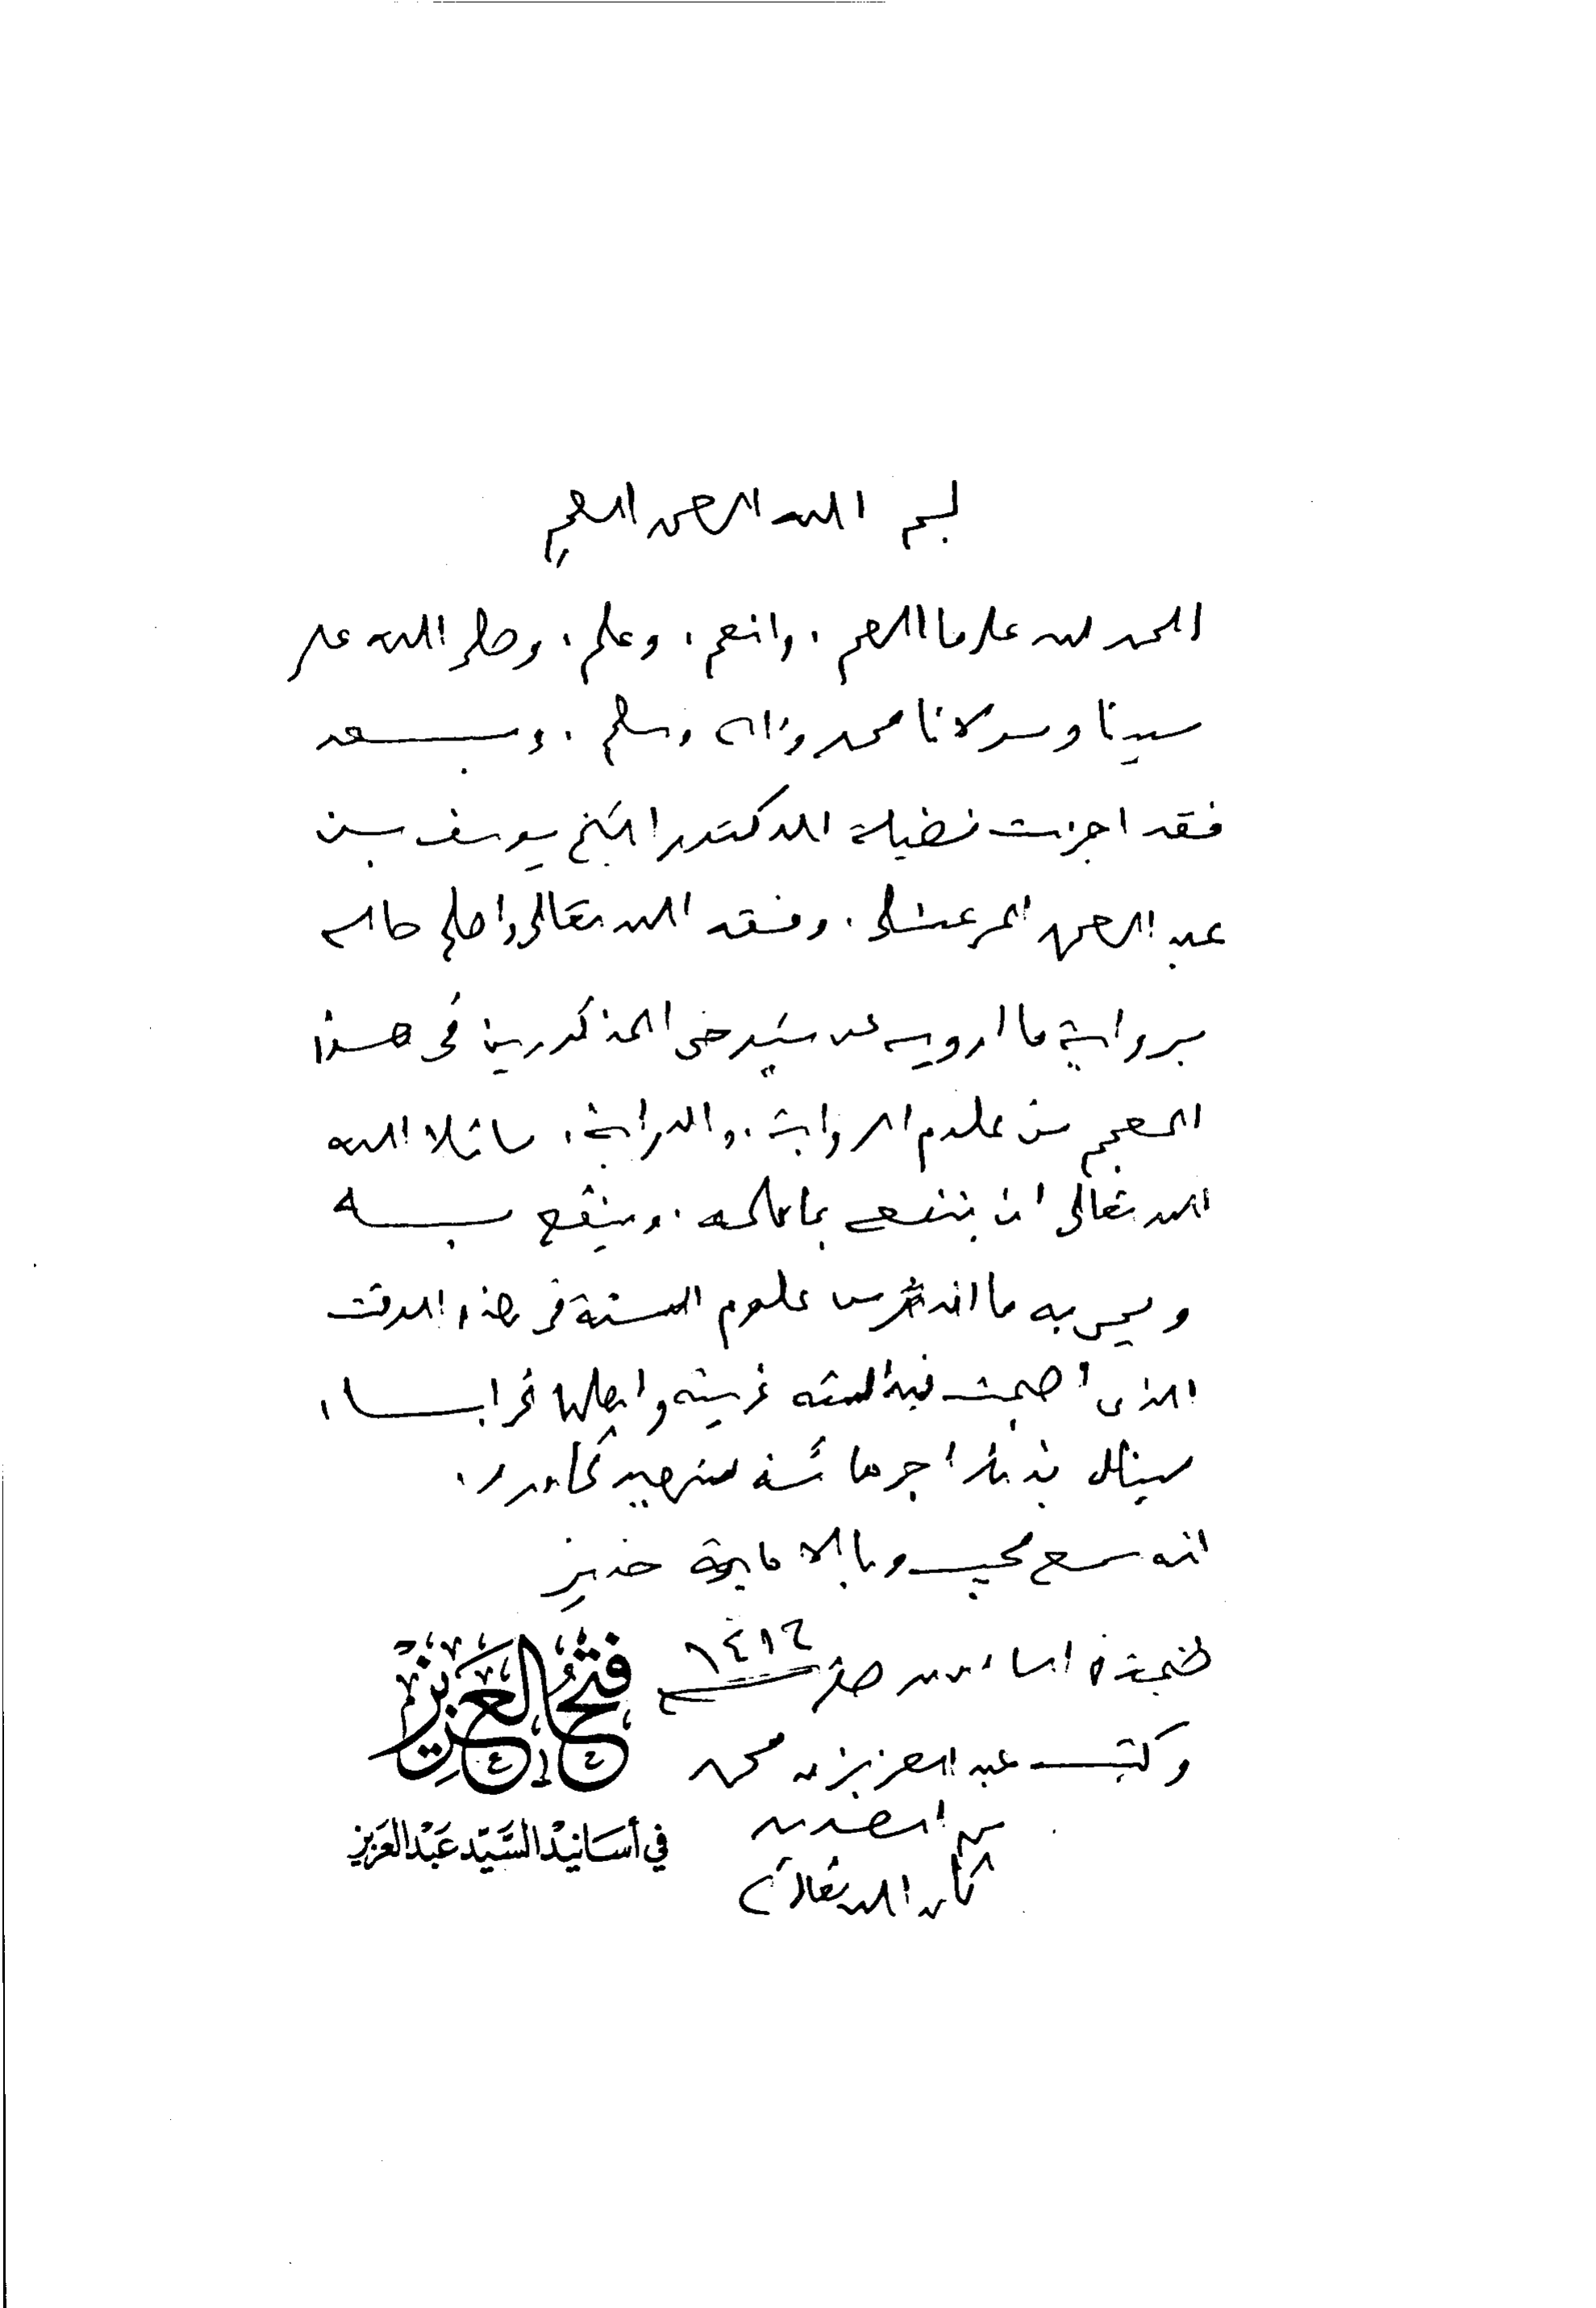 بسم الله الرحمن الرحيم
الحمد لله على ما الهم، وانعم، وعلم، وصلى الله على
سيدنا ومولانا محمد وآله وسلم، وبعد
فقد اجزت فضيلة الدكتور الشيخ يوسف بن
عبد الرحمن المرعشلى، وفقه الله تعالى واصلح حاله
برواية ما ارويه عن شيوخى المذكورين فى هذا
المعجم من علوم الرواية، والدراية، سائلا الله
الله تعالى ان ينفعه بما علمه، وينفع به
ويحيى به ما اندرس من علوم السنة فى هذا الوقت
الذى اصبحت فيه السنة غريبة واهلها غرابا،
لينال بذلك اجر مائة شهيد كما ورد،
انه سميع مجيب وبالاجابة جدير
طنجة فى صفر ١٤١٦
وكتب عبد العزيز بن محمد
بن الصديق
كان الله تعالى له
فتح العزيز
في أسَانيْد السَّيّد عَبْد العَزيز